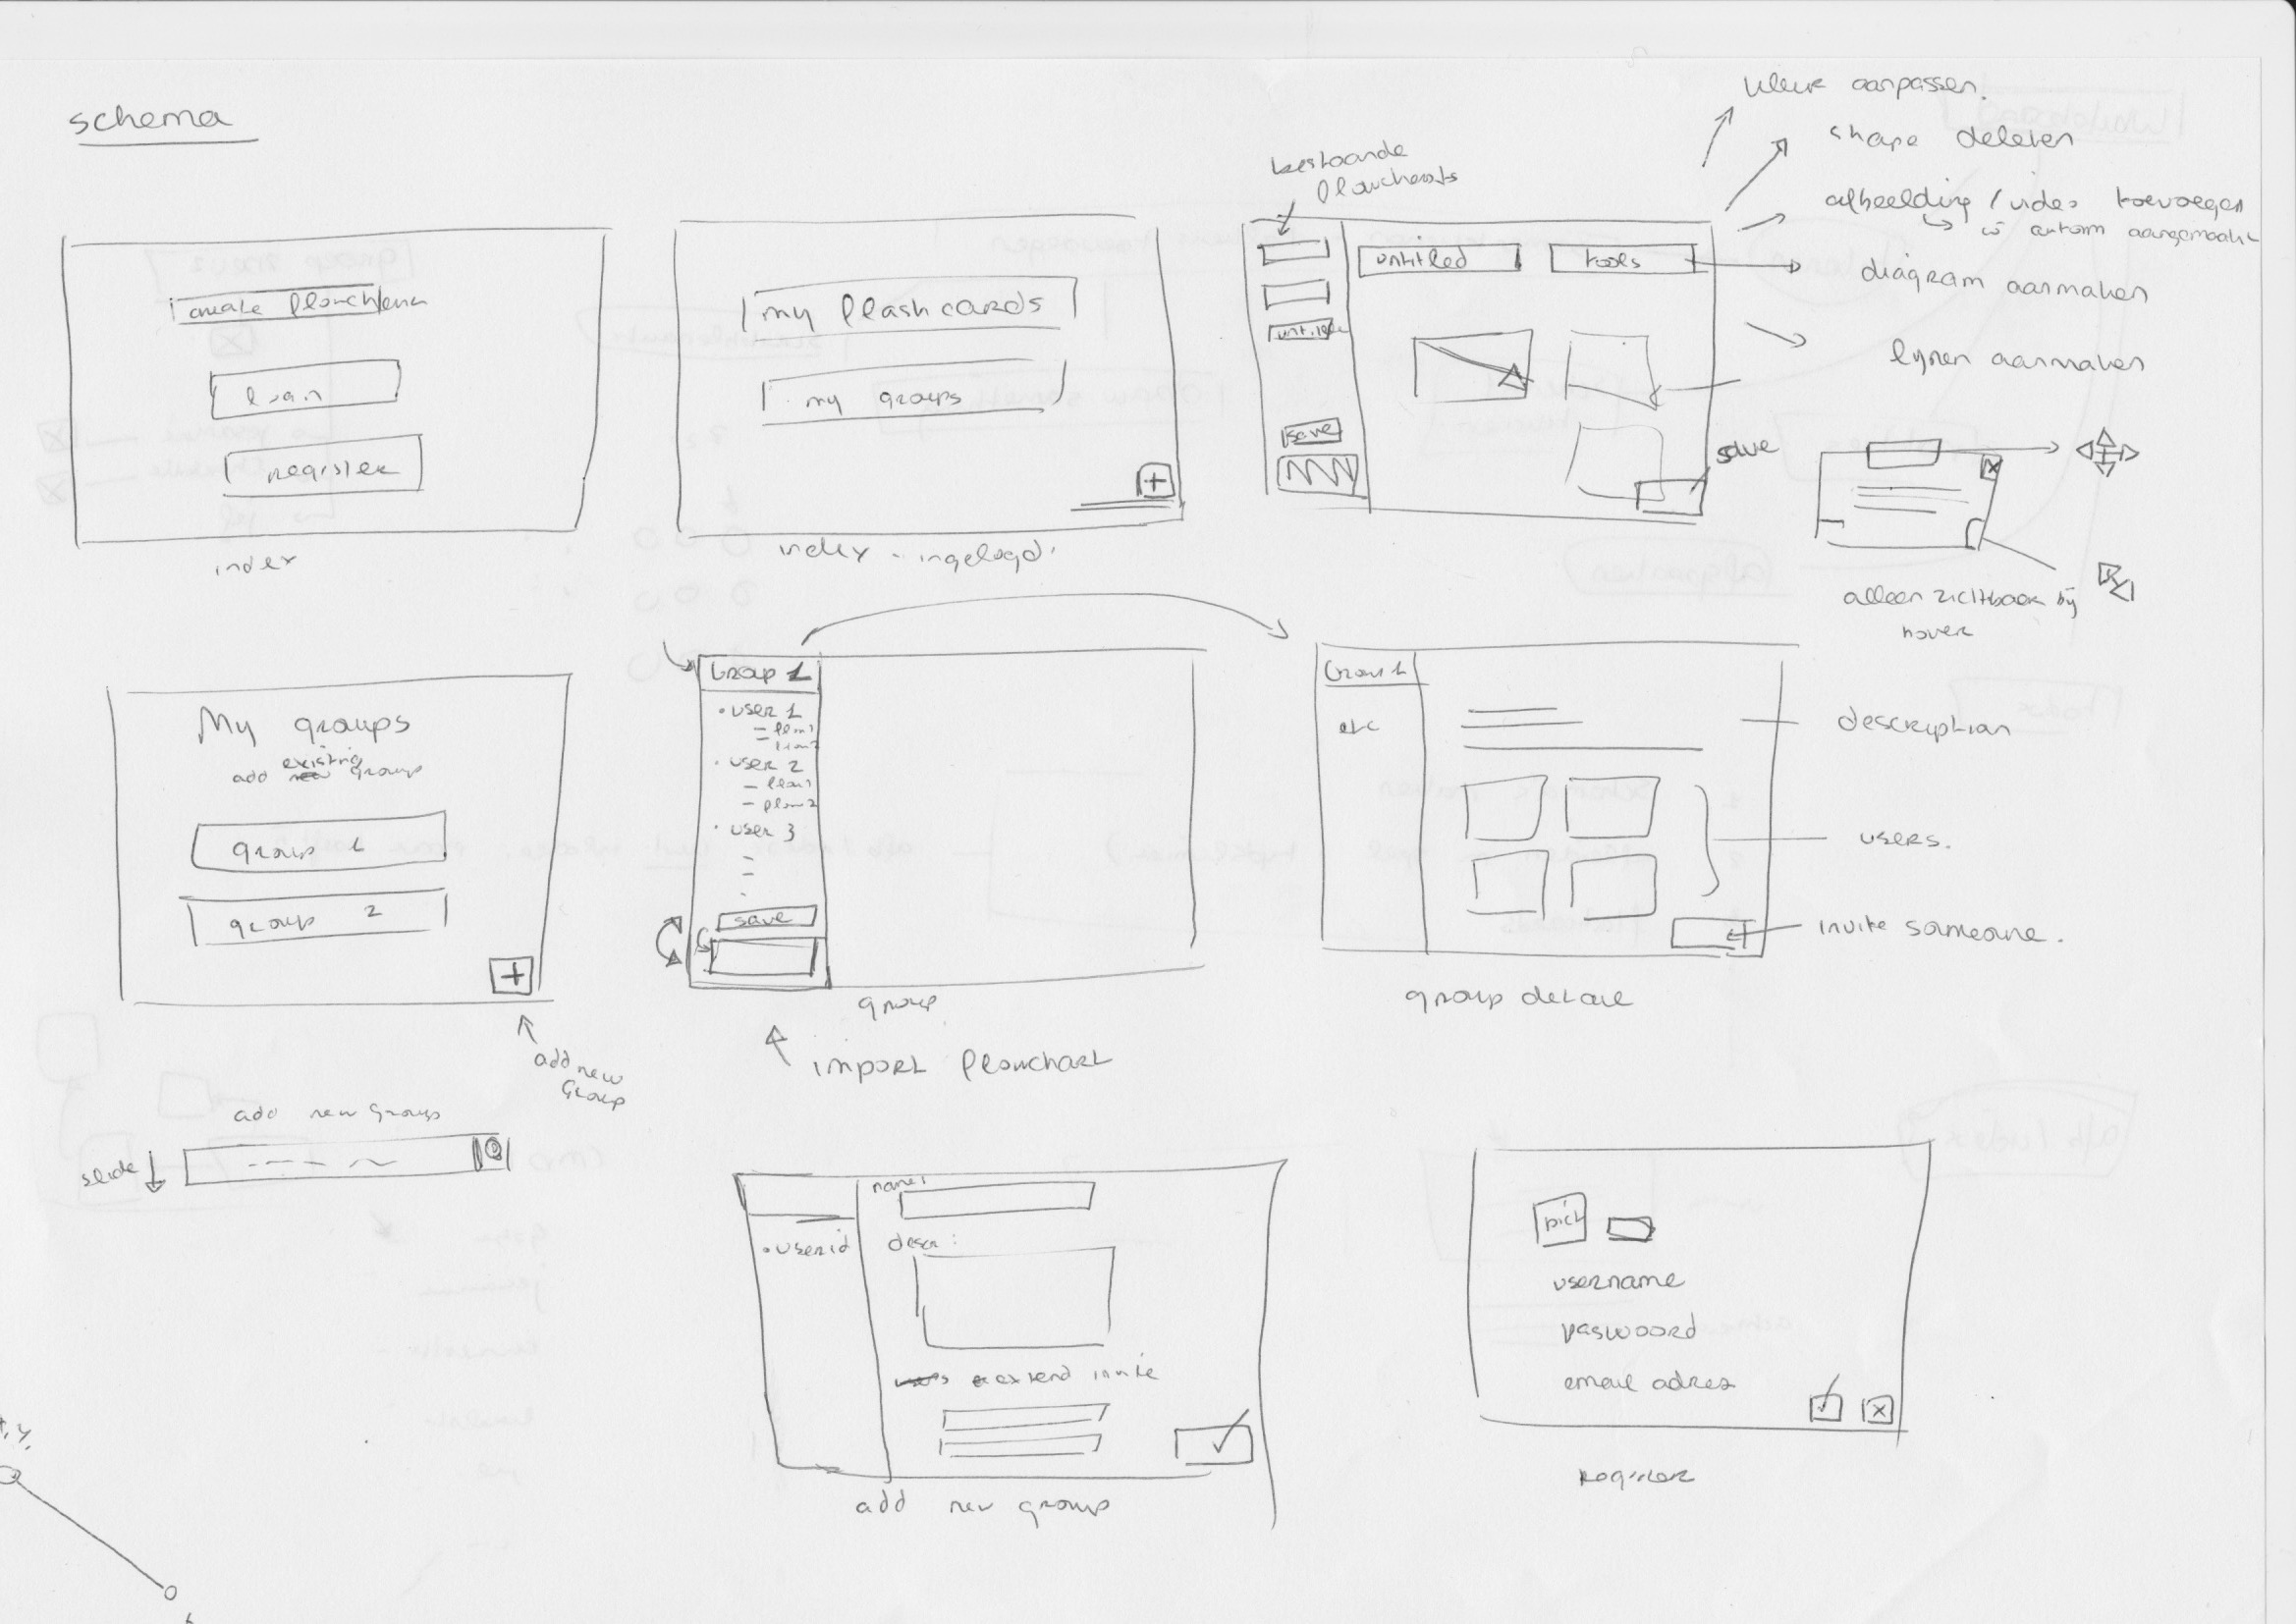 schema
create flowchart
login
register
index
my flashcards
my groups
+
index - ingelogd
bestaande
flowcharts
untitled
tools
untitled
save
save
kleur aanpassen.
shape deleten
afbeelding / video toevoegen
↳ w autom aangemaakt
diagram aanmaken
lijnen aanmaken
x
alleen zichtbaar bij
hover
My groups
existing
add new group
group 1
group 2
+
add new
group
add new group
slide
Group 1
• user 1
– flow1
– flow2
• user 2
– flow1
– flow2
• user 3
save
group
import flowchart
Group 1
etc
description
users.
invite someone.
group detail
name:
• userid
descr:
users extend invite
add new group
pict
username
paswoord
email adres
x
Register